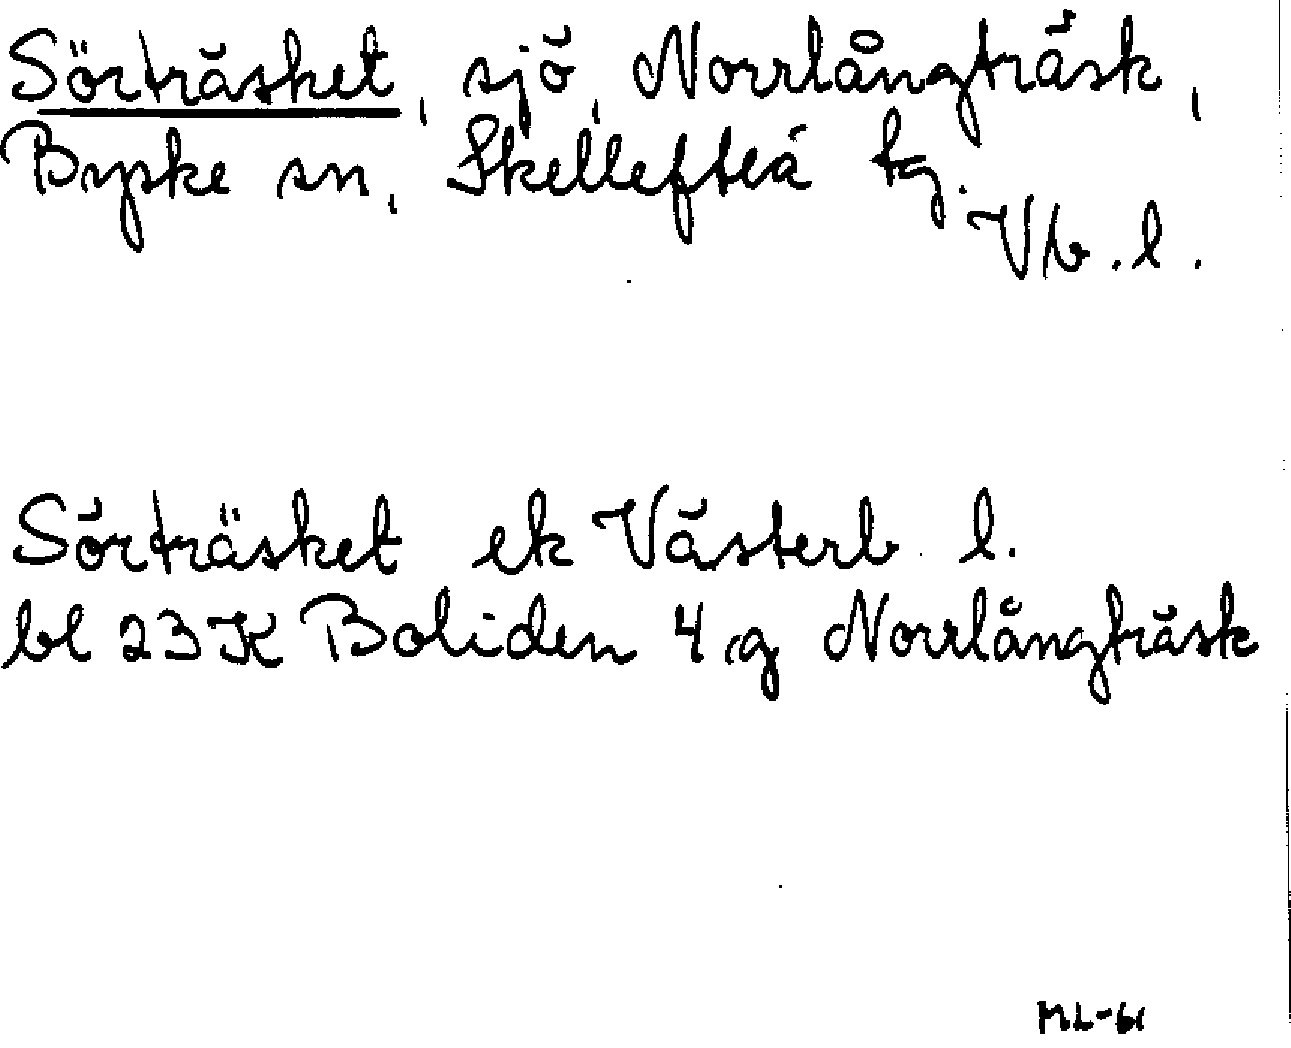 Sörträsket, sjö, Norrlångträsk,
Byske sn, Skellefteå tg.
Vb. l.
Sörträsket ek Västerb. l.
bl 23K Boliden 4 g Norrlångträsk
ML-61